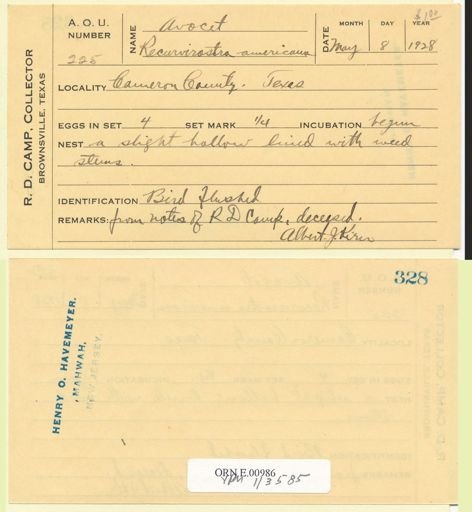 R. D. CAMP, COLLECTOR
BROWNSVILLE, TEXAS
A. O. U.
NUMBER
225
NAME Avocet
Recurvirostra americana
$1.00
DATE MONTH DAY YEAR
May 8 1928
LOCALITY Cameron County. Texas
EGGS IN SET 4 SET MARK 1/4 INCUBATION begun
NEST a slight hollow lined with weed
stems.
IDENTIFICATION Bird Flushed
REMARKS: from notes of R D Camp, deceased.
Albert J. Kirn
328
HENRY O. HAVEMEYER.
MAHWAH,
NEW JERSEY.
ORN.E.00986
1/3585